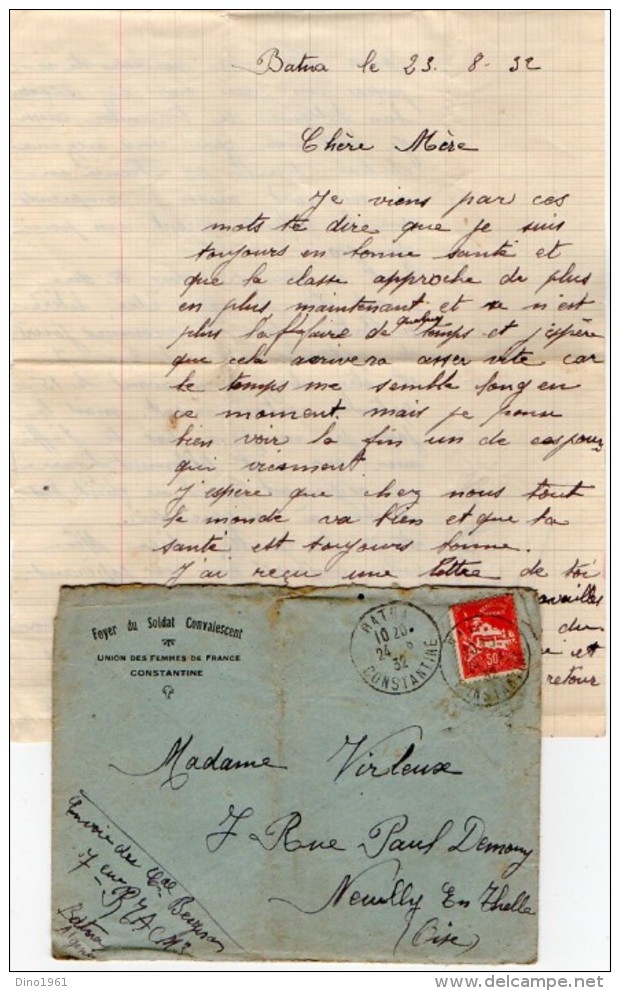 Batna le 23. 8. 32
Chère Mère
Je viens par ces
mots te dire que je suis
toujours en bonne santé et
que la classe approche de plus
en plus maintenant et ce n'est
plus l'affaire de quelques temps et j'espère
que cela arrivera asser vite car
le temps me semble long en
ce moment. mais je
bien voir la fin un de ces jours
qui viennent.
J'espère que chez nous tout
le monde va bien et que ta
santé est toujours bonne.
J'ai reçu une lettre de toi
du
et
retour
Foyer du Soldat Convalescent
UNION DES FEMMES DE FRANCE
CONSTANTINE
BATNA
10 20
24 8
32
CONSTANTINE
50
CONSTANTINE
Madame Virleux
7 Rue Paul Demouy
Neuilly En Thelle
(Oise)
Envoie de
7 eme
Batna
Algérie
Dino1961
delcampe.net